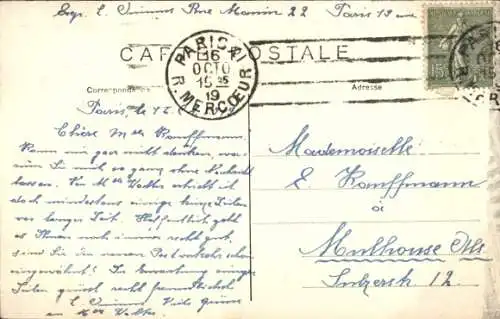 Exp. L. Rue Manin 22 Paris 19
CARTE POSTALE
PARIS 41
16
OCTO
15 35
19
R. MERCŒUR
15
Correspondance
Adresse
Paris, le
Chère Mlle Kauffmann
Kann mir gar nicht denken, wa-
rum Sie mich so ganz ohne Nachricht
lassen. Von Mlle Walter erhielt ich
doch mindestens einige Zeilen
vor langer Zeit. Hoffentlich geht
es Ihnen noch immer recht gut,
sind Sie den neuen Postverkehr schon
eingewöhnt? In Erwartung einiger
Zeilen grüsst recht freundlichst
L. Viele Grüsse
an Mlle Walter
Mademoiselle
E. Kauffmann
à
Mulhouse Als.
12